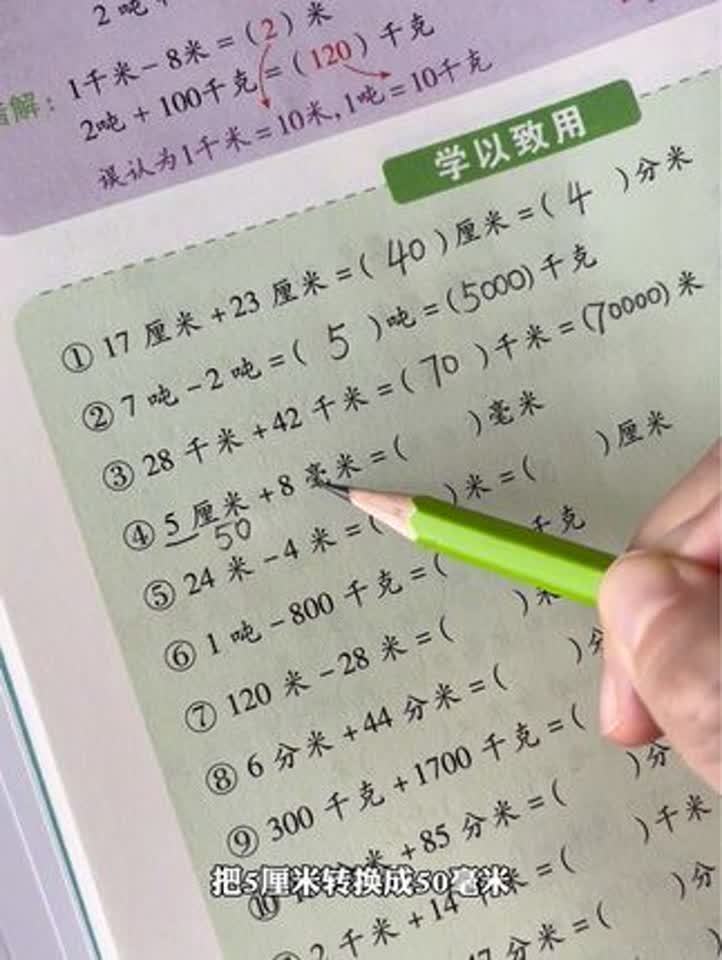 2吨
错解：1千米－8米＝（2）米
2吨＋100千克＝（120）千克
误认为1千米＝10米，1吨＝10千克
学以致用
①17厘米＋23厘米＝（40）厘米＝（4）分米
②7吨－2吨＝（5）吨＝（5000）千克
③28千米＋42千米＝（70）千米＝（70000）米
④5厘米＋8毫米＝（ ）毫米
50
⑤24米－4米＝（ ）米＝（ ）厘米
⑥1吨－800千克＝（ 千克
⑦120米－28米＝（ ）米
⑧6分米＋44分米＝（ ）分
⑨300千克＋1700千克＝（
⑩ 米＋85分米＝（ ）分
2千米＋14千米＝（ ）千米
47分米＝（ ）分
把5厘米转换成50毫米